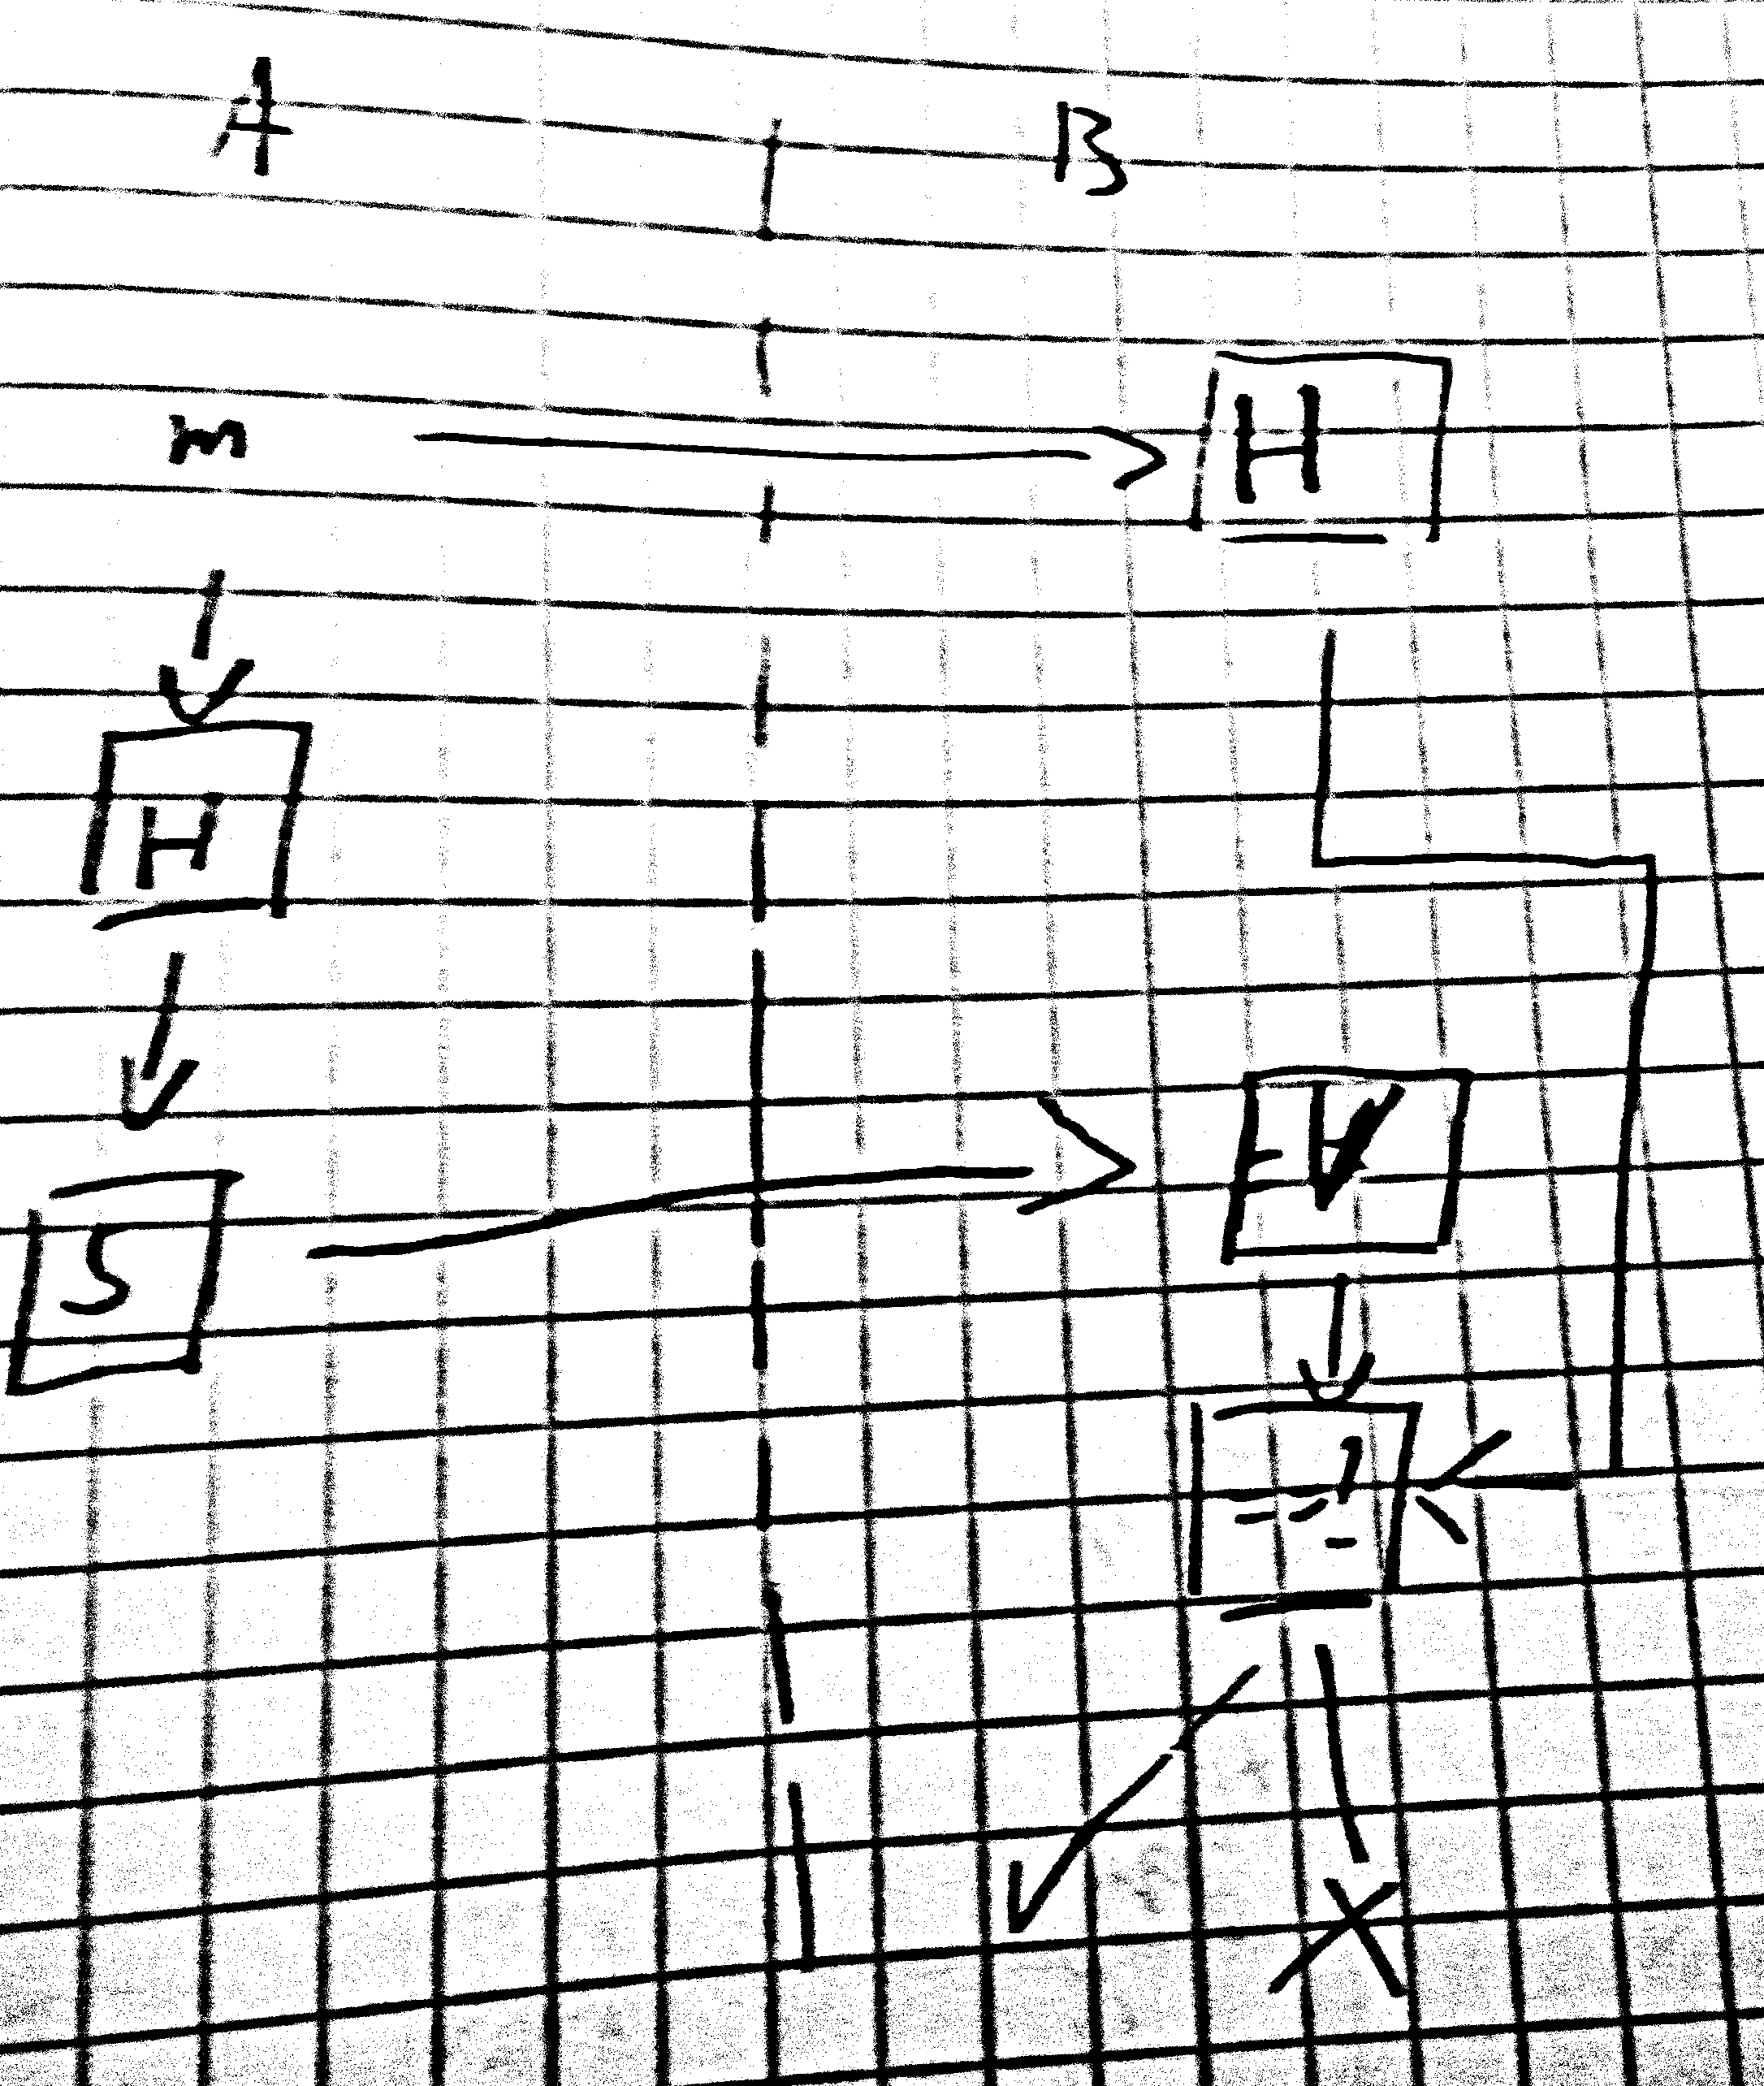 A B
m H
H
S
= ?